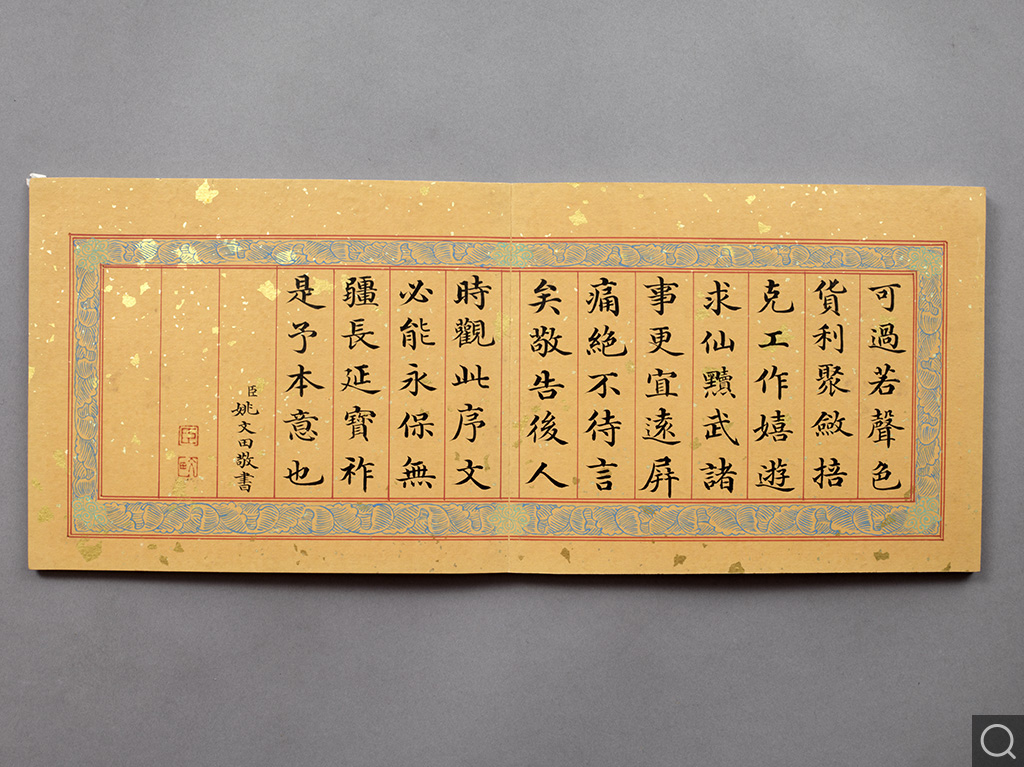 可過若聲色
貨利聚斂掊
克工作嬉遊
求仙黷武諸
事更宜遠屏
痛絕不待言
矣敬告後人
時觀此序文
必能永保無
疆長延寶祚
是予本意也
臣姚文田敬書